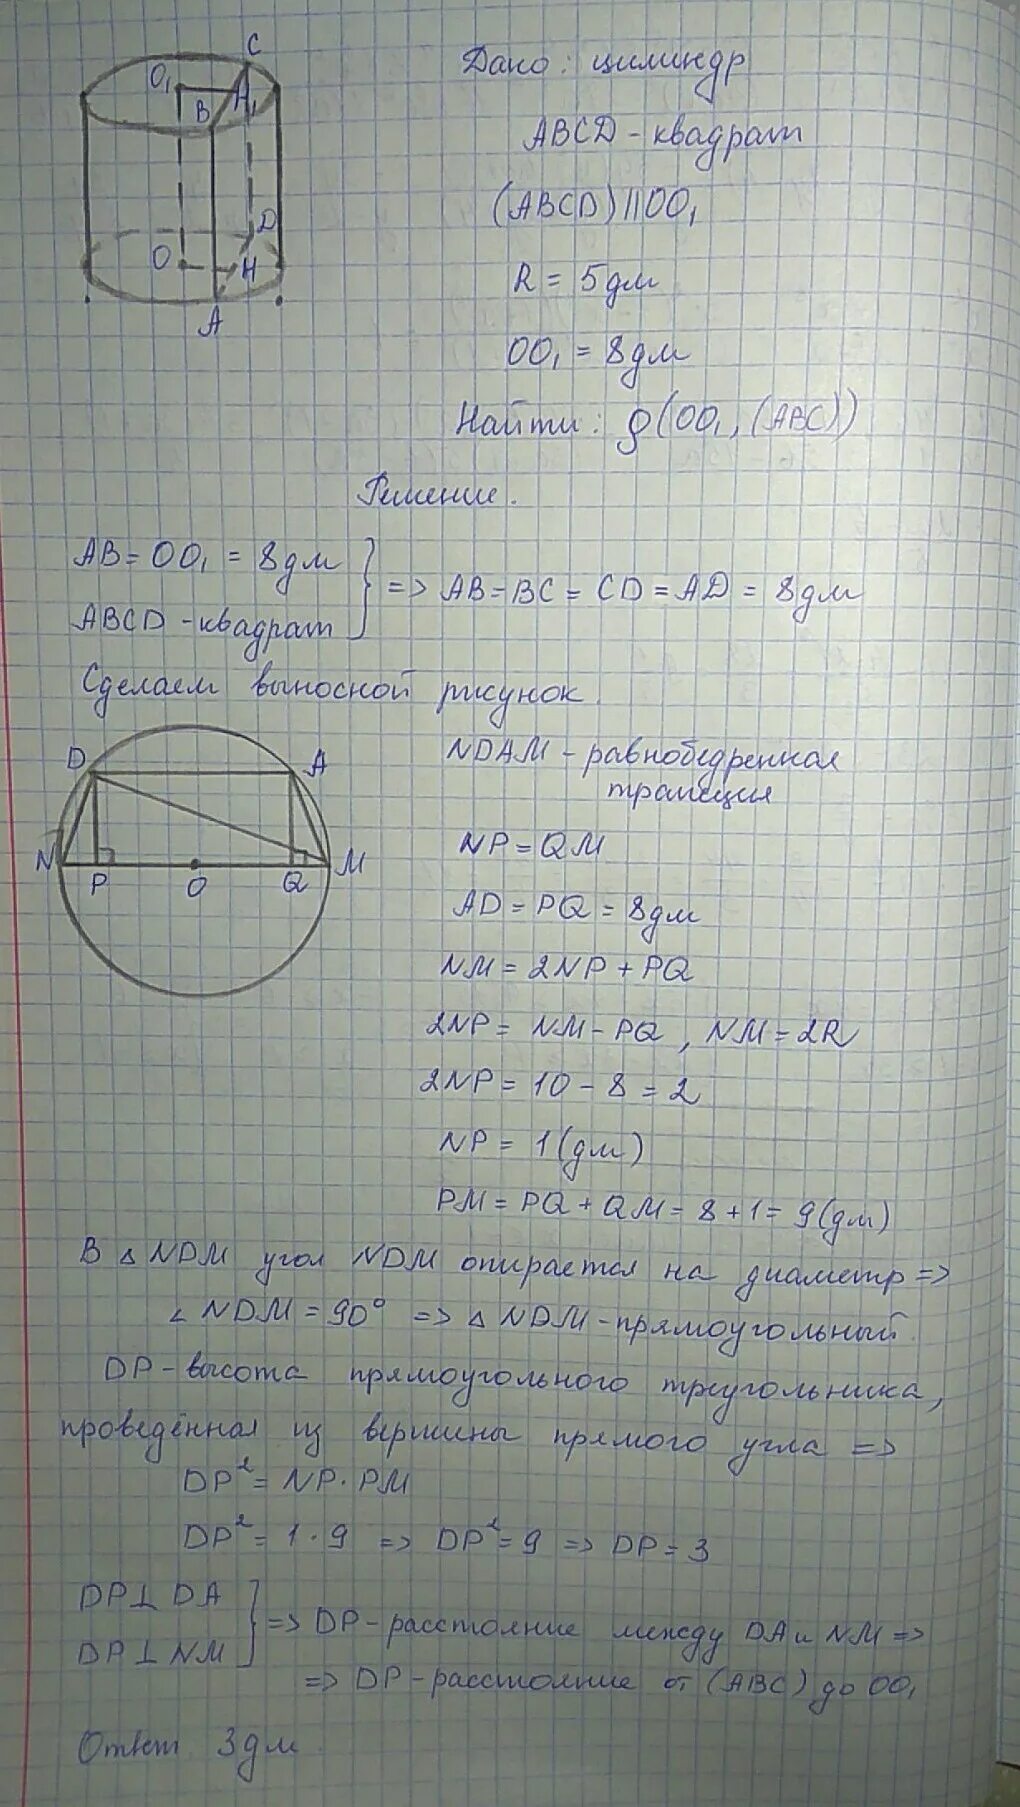 Дано: цилиндр
ABCD - квадрат
(ABCD) || OO₁
R = 5 дм
OO₁ = 8 дм
Найти: ρ(OO₁, (ABC))
C
O₁
B
H₁
D
O
H
A
Решение.
AB = OO₁ = 8 дм
ABCD - квадрат
=> AB = BC = CD = AD = 8 дм
Сделаем выносной рисунок.
D
A
N
M
P
O
Q
NDAM - равнобедренная
трапеция
NP = QM
AD = PQ = 8 дм
NM = 2NP + PQ
2NP = NM - PQ, NM = 2R
2NP = 10 - 8 = 2
NP = 1 (дм)
PM = PQ + QM = 8 + 1 = 9 (дм)
В △NDM угол NDM опирается на диаметр =>
∠NDM = 90° => △NDM - прямоугольный.
DP - высота прямоугольного треугольника,
проведённая из вершины прямого угла =>
DP² = NP · PM
DP² = 1 · 9 => DP² = 9 => DP = 3
DP ⊥ DA
DP ⊥ NM
=> DP - расстояние между DA и NM =>
=> DP - расстояние от (ABC) до OO₁
Ответ 3 дм.